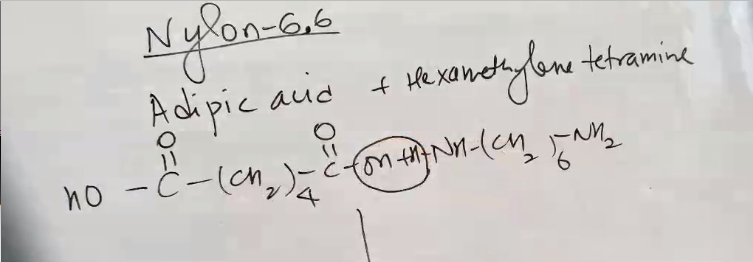 Nylon-6.6
Adipic acid + Hexamethylene tetramine
O O
HO - C - (CH2)4 - C - OH + H - NH - (CH2)6 - NH2